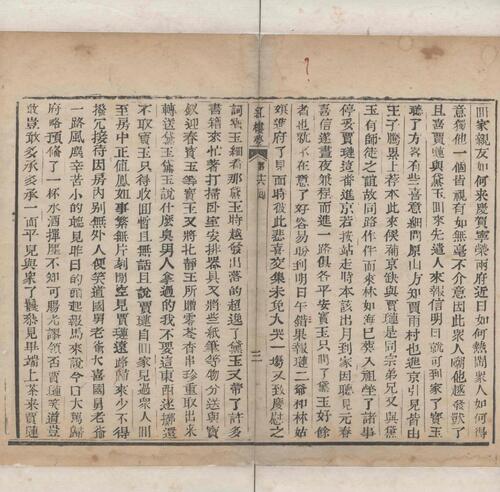 回家親友如何來慶賀寧榮兩府近日如何熱鬧衆人如何得
意獨他一個皆視有如無毫不介意因此衆人嘲他越發獃了
且喜賈璉與黛玉回來先遣人來報信明日就可到家了寶玉
聽了方畧有些喜意細問原由方知賈雨村也進京引見皆由
王子騰累上荐本此來候補京缺與賈璉是同宗弟兄又與黛
玉有師徒之誼故同路作伴而來林如海已葬入祖塋了諸事
停妥賈璉這番進京若按站走時本該出月到家因聽見元春
喜信遂晝夜兼程而進一路俱各平安寶玉只問了黛玉好餘
者也就不在意了好容易盼到明日午錯果報璉二爺和林姑
娘進府了見面時彼此悲喜交集未免大哭一場又致慶慰之
紅樓夢 第十六回 三
詞寶玉細看那黛玉時越發出落的超逸了黛玉又帶了許多
書籍來忙着打掃臥室安排器具又將些紙筆等物分送與寶
釵迎春寶玉等寶玉又將北靜王所贈蕶苓香串珍重取出來
轉送黛玉黛玉說什麽臭男人拿過的我不要這東西遂擲還
不取寶玉只得收回暫且無話且說賈璉自回家見過衆人回
至房中正值鳳姐事繁無片刻閒空見賈璉遠路歸來少不得
撥冗接待因房内别無外人便笑道國舅老爺大喜國舅老爺
一路風塵辛苦小的聽見昨日的頭起報馬來說今日大駕歸
府略預備了一杯水酒撣塵不知可賜光謬領否賈璉笑道豈
敢豈敢多承多承一面平兒與衆丫鬟參見畢端上茶來賈璉